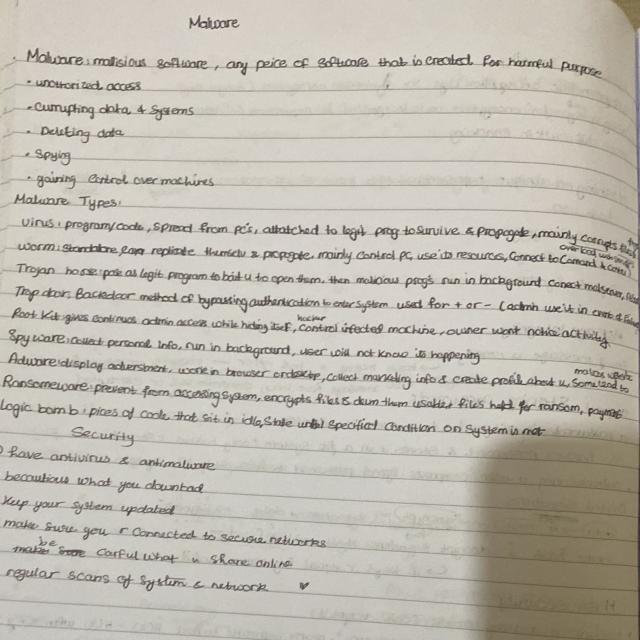 Malware
. Malware: malisious software, any peice of software that is created for harmful purpose
• unauthorized access
• Currupting data, & systems
• Deleting data
• Spying
• gaining control over machines
Malware Types:
Virus: program/code, spread from pc's, attatched to legit prog to survive & propogate, mainly corrupts files
worm: standalone, replicate themselv & propogate, mainly control pc, use its resources, connect to comand & control
Trojan horse: pose as legit program to bait u to open them, then malicious prog's run in background
Trap door: Backdoor method of bypassing authentication to enter system used for + or - (admin use it in
Root Kit: gives continuos admin access while hiding itself, hacker control infected machine, owner wont notice activity
Spyware: collect personal info, run in background, user will not know its happening
Adware: display adversment, work in browser or desktop, collect marketing info & create profile about u, some lead to malicous website
Ransomeware: prevent from accessing system, encrypts files & them files held for ransom, payment
Logic bomb: pices of code that sit in idle state until specified condition on system is met
Security
have antivirus & antimalware
becautious what you download
Keep your system updated
make sure you r connected to secure networks
be carful what u share online
regular scans of system & network ♥